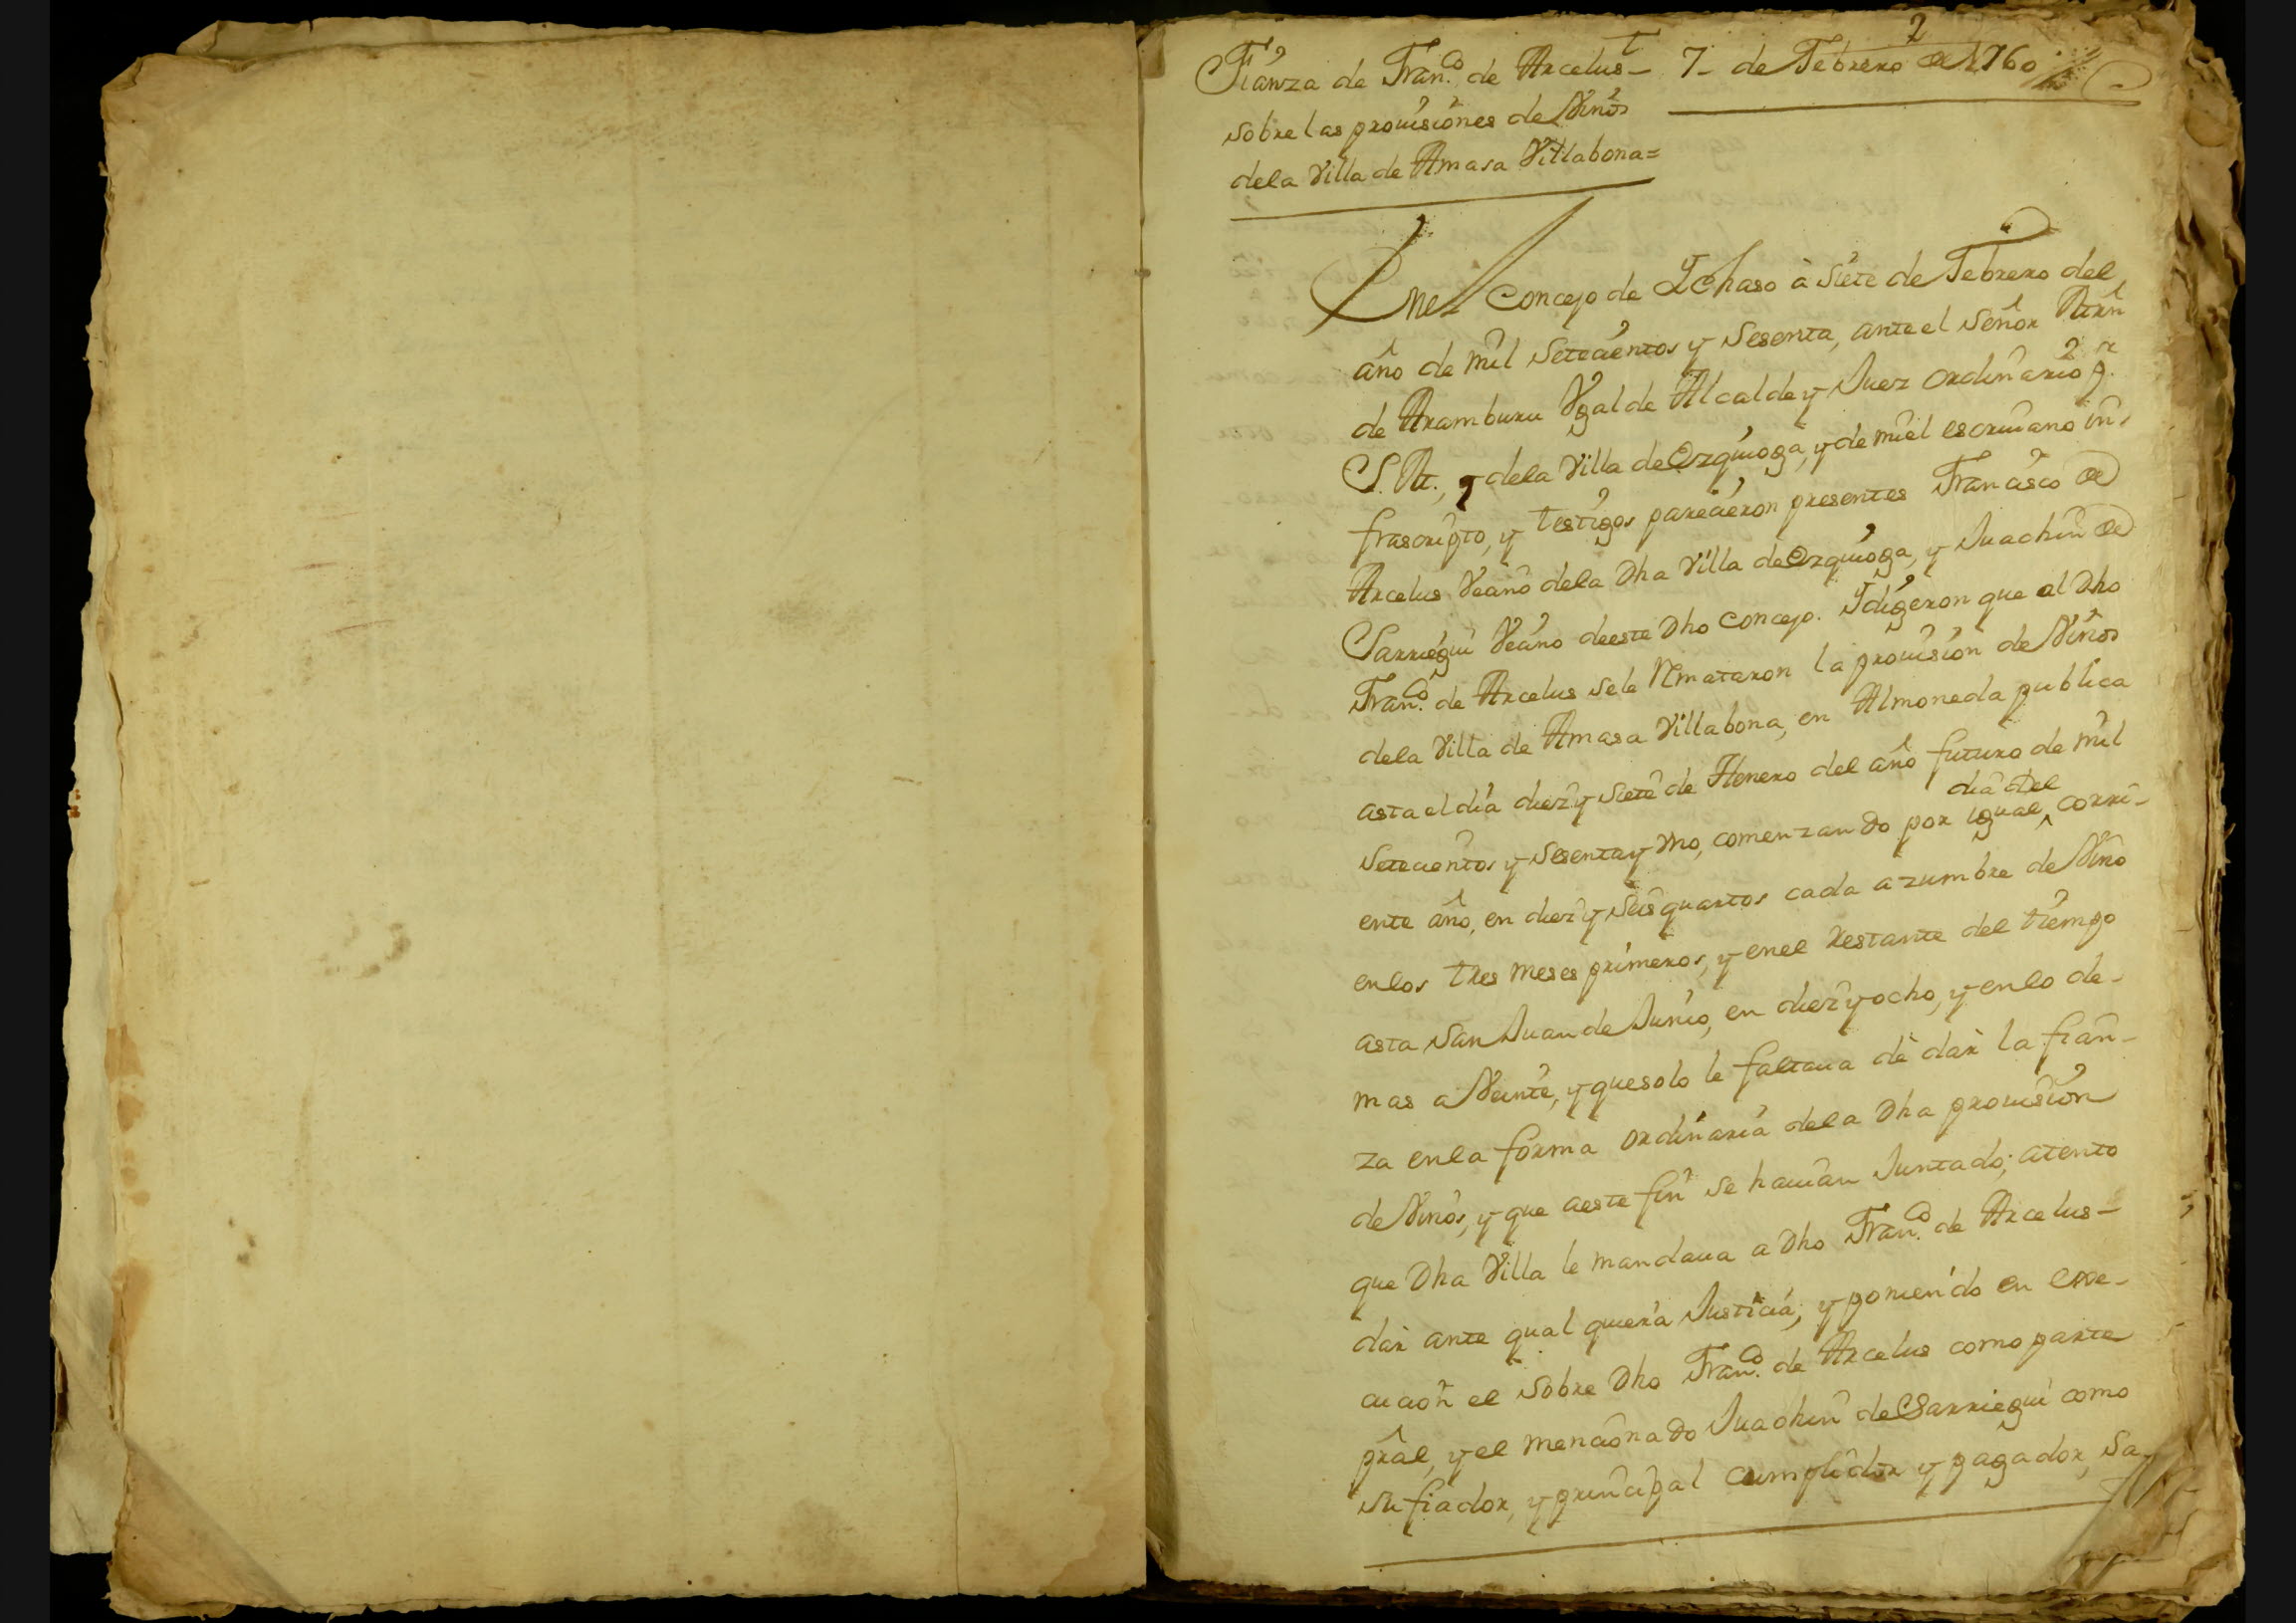 Fianza de Fran.co de Arcelus 7 de Febrero de 1760
sobre las prouisiones de Vinos
dela Villa de Amasa Villabona=
Enel Concejo de Ychaso à siete de Febrero del
año de mil setecientos y sesenta, ante el señor
de Aramburu Ugalde Alcalde y Juez ordinario p.r
S. M., y dela Villa de Ezquioga, y de mi el escriuano in-
frascripto, y testigos parecieron presentes Francisco de
Arcelus Vecino dela Dha Villa de Ezquioga, y Juachin de
Sarriegui Vecino deeste Dho Concejo. Y digeron que al Dho
Fran.co de Arcelus sele Rmataron la prouision de Vinos
dela Villa de Amasa Villabona, en Almoneda publica
asta el dia diez y siete de Henero del año futuro de mil
setecientos y sesenta y Uno, comenzando por igual dia del corri-
ente año, en diez y seis quartos cada azumbre de Vino
enlos tres meses primeros, y enel restante del tiempo
asta San Juan de Junio, en diez y ocho, y enlo de-
mas a Veinte, y quesolo le faltaua de dar la fian-
za enla forma ordinaria dela Dha prouision
de Vinos, y que aeste fin se hauian Juntado; atento
que Dha Villa le mandaua a Dho Fran.co de Arcelus
dar ante qual quiera Justicia; y poniendo en exe-
cucion el sobre Dho Fran.co de Arcelus como parte
pral, y el mencionado Juachin de Sarriegui como
su fiador, y principal cumplidor y pagador, sa-